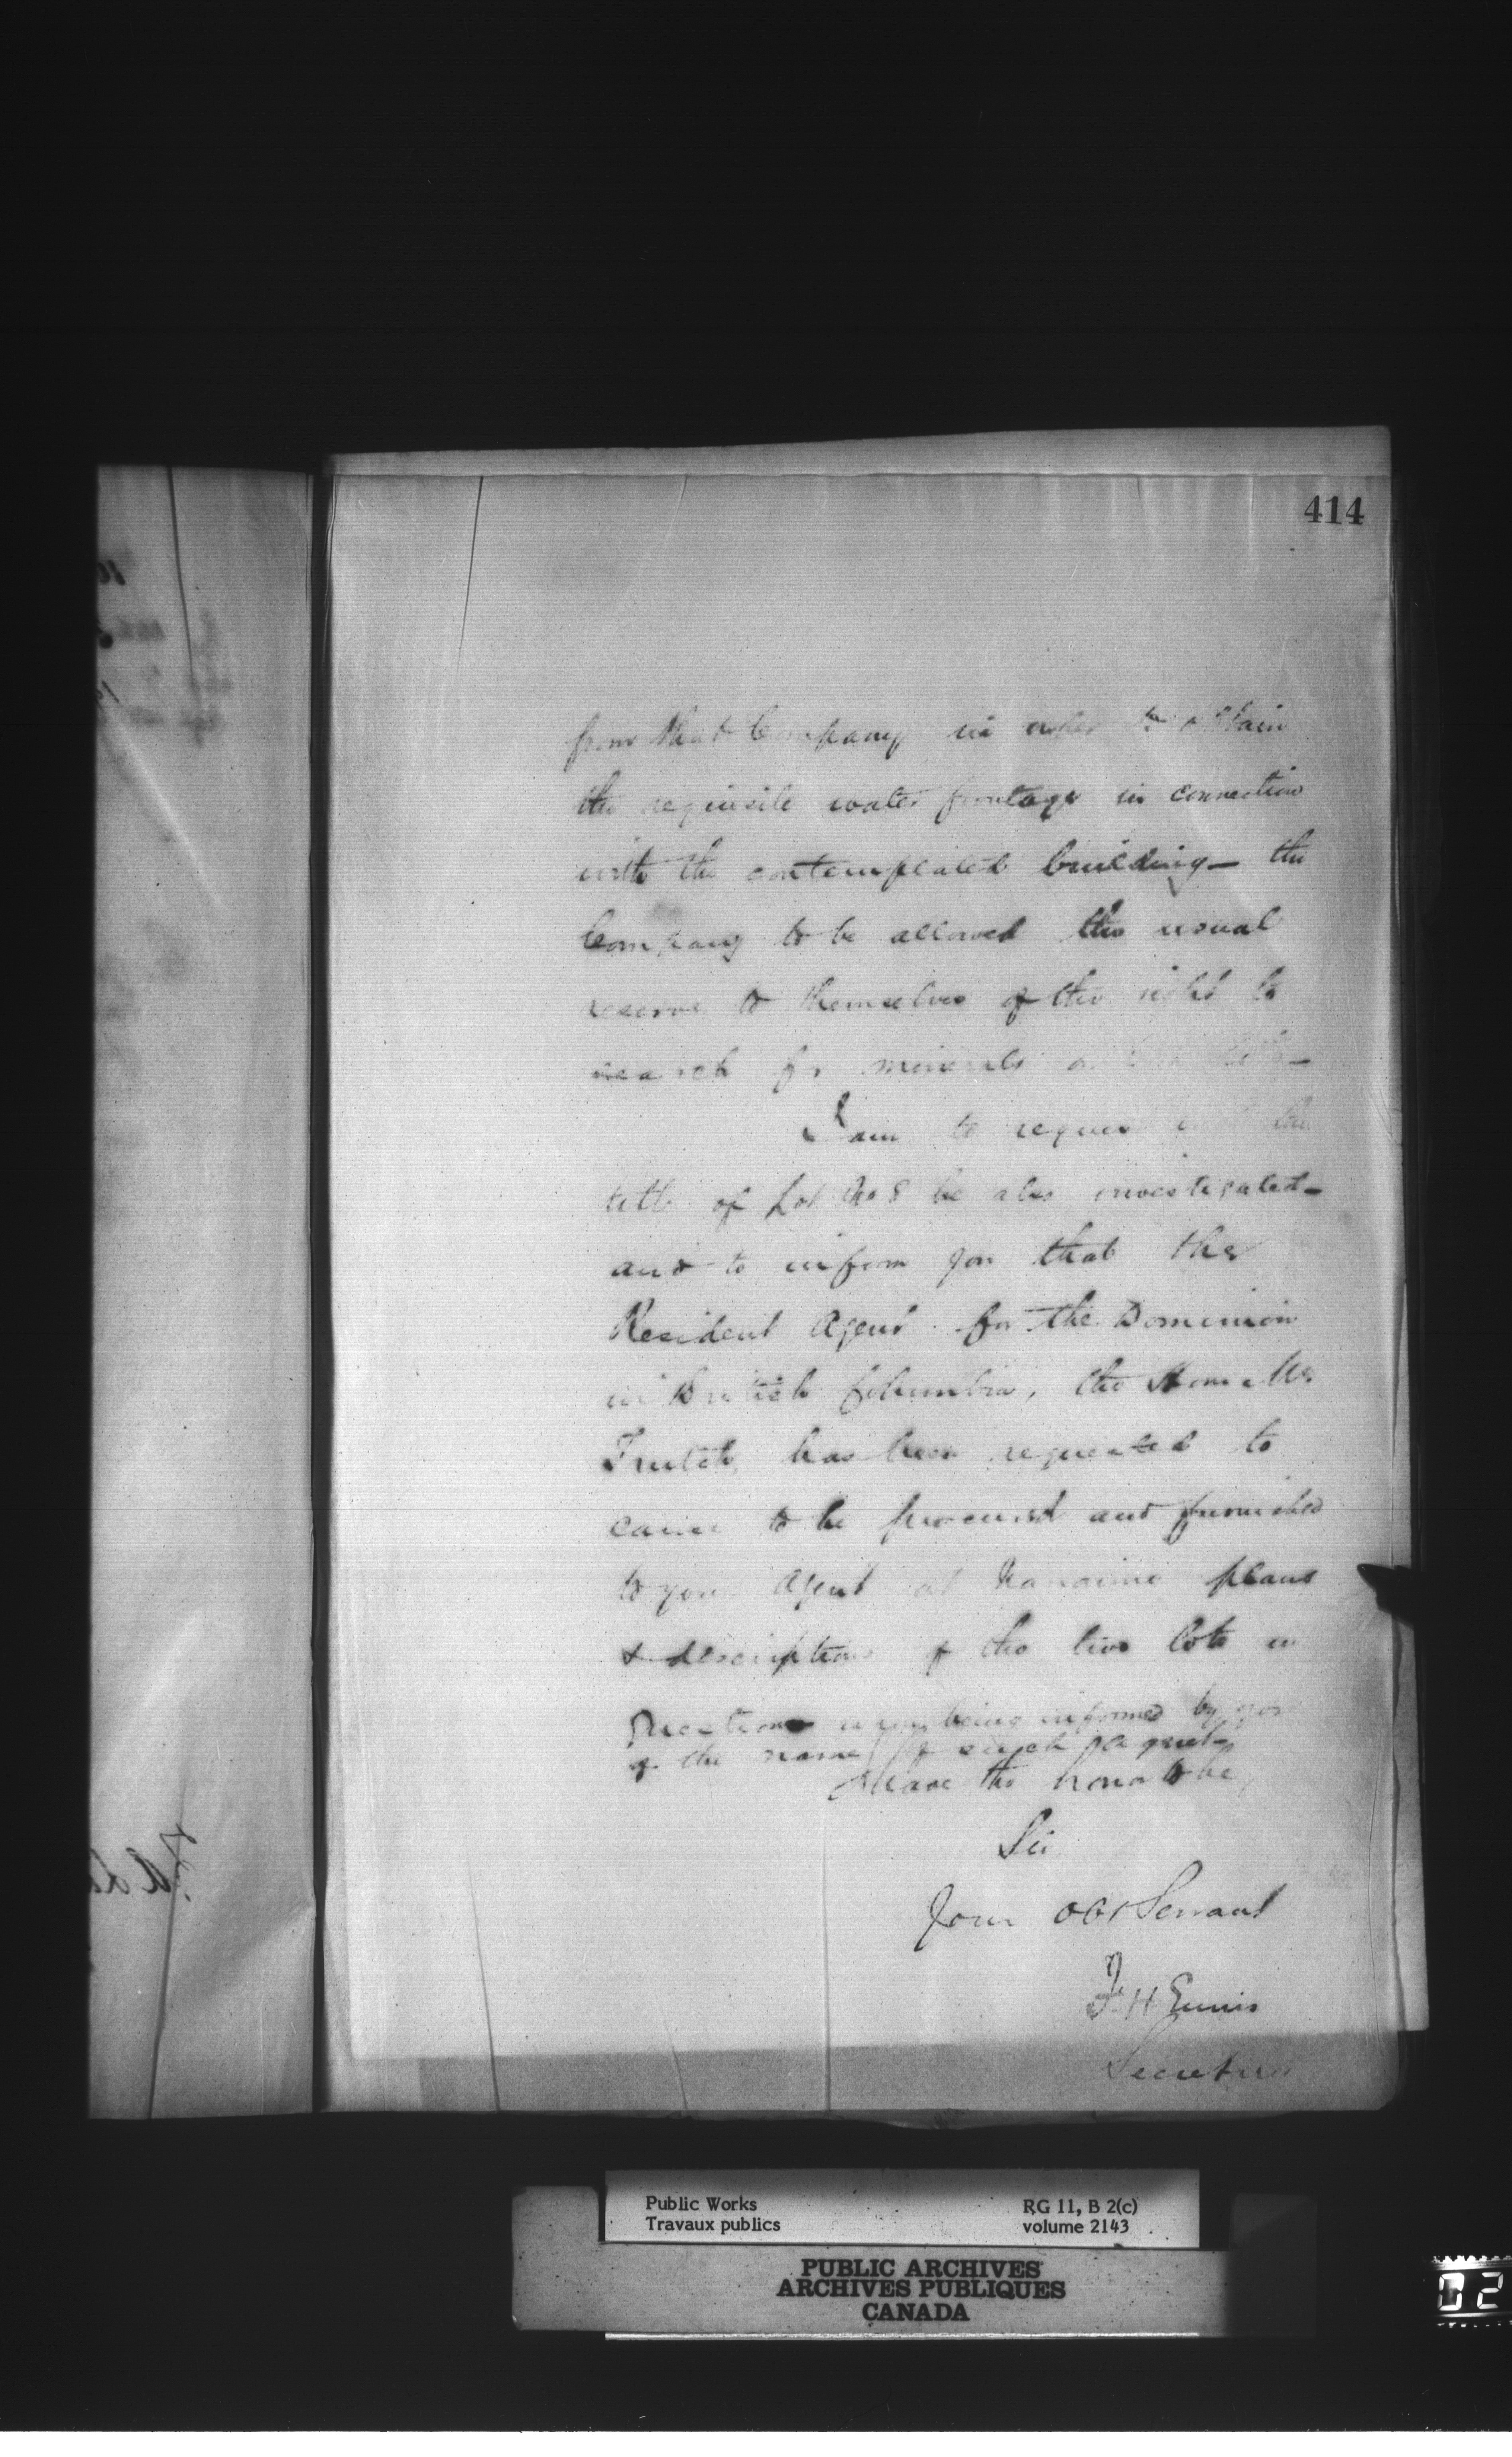 414
from that Company in order to obtain
the requisite water frontage in connection
with the contemplated building — the
Company to be allowed the usual
reserve to themselves of the right to
search for minerals
I am to request
title of Lot No 8 be also investigated —
and to inform you that the
Resident Agent for the Dominion
in British Columbia, the Hon. Mr.
Trutch, has been requested to
cause to be procured and furnished
to your Agent at Nanaimo plans
& descriptions of the two lots in
question upon being informed by you
of the name of such agent —
I have the honor to be,
Sir
Your Obt Servant
F. H. Ennis
Secretary
Public Works
Travaux publics
RG 11, B 2(c)
volume 2143
PUBLIC ARCHIVES
ARCHIVES PUBLIQUES
CANADA
02